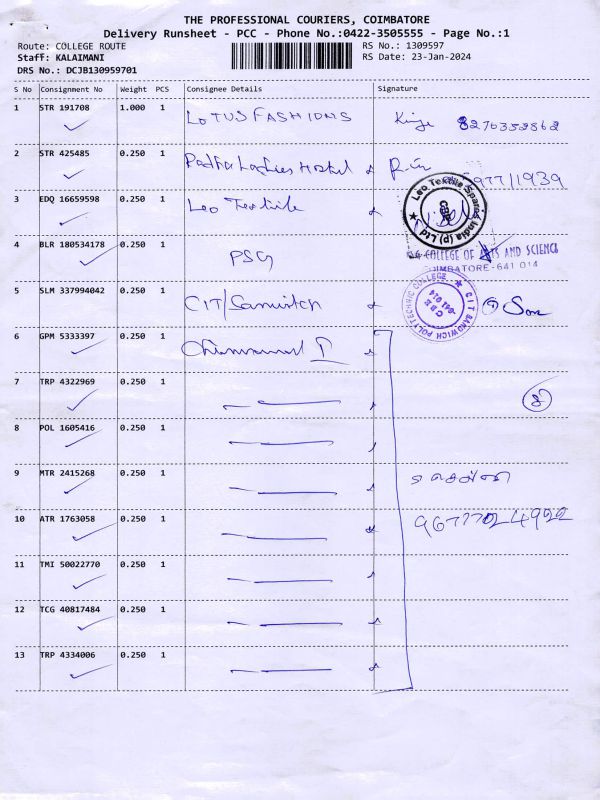 THE PROFESSIONAL COURIERS, COIMBATORE
Delivery Runsheet - PCC - Phone No.:0422-3505555 - Page No.:1
Route: COLLEGE ROUTE
RS No.: 1309597
Staff: KALAIMANI
RS Date: 23-Jan-2024
DRS No.: DCJB130959701
S No Consignment No Weight PCS Consignee Details Signature
1 STR 191708 1.000 1 LOTUS FASHIONS 8270352862
2 STR 425485 0.250 1 Ladies Hostel
3 EDQ 16659598 0.250 1 Leo Textile
Leo Textile Spares India (p) Ltd
CBE
4 BLR 180534178 0.250 1 PSG
COLLEGE OF ARTS AND SCIENCE
COIMBATORE-641 014
5 SLM 337994042 0.250 1 CIT/Sandwich
CIT SANDWICH POLYTECHNIC COLLEGE
CBE
641 014
6 GPM 5333397 0.250 1
7 TRP 4322969 0.250 1
8
8 POL 1605416 0.250 1
9 MTR 2415268 0.250 1
10 ATR 1763058 0.250 1 96777024922
11 TMI 50022770 0.250 1
12 TCG 40817484 0.250 1
13 TRP 4334006 0.250 1